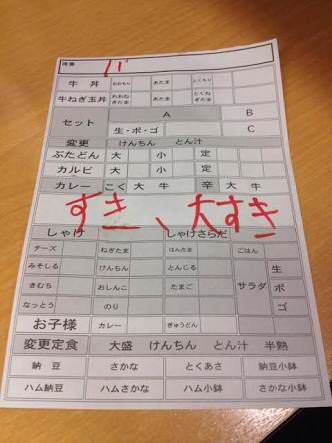 11
牛丼 おおもり あたま とくもり
牛ねぎ玉丼 おおねぎたま あたま とくねぎたま
セット A B
生・ポ・ゴ C
変更 けんちん とん汁
ぶたどん 大 小 定
カルビ 大 小 定
カレー こく 大 牛 辛 大 牛
すき、大すき
しゃけ しゃけさらだ
チーズ ねぎたま はんたま ごはん
みそしる けんちん とんじる サラダ 生
きむち おしんこ たまご ポ
なっとう のり ゴ
お子様 カレー ぎゅうどん
変更定食 大盛 けんちん とん汁 半熟
納豆 さかな とくあさ 納豆小鉢
ハム納豆 ハムさかな ハム小鉢 さかな小鉢